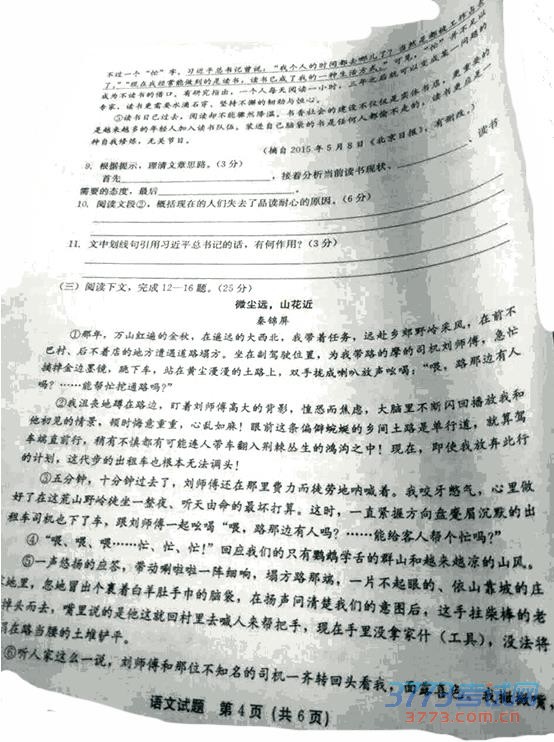 不过一个“忙”字。习近平总书记曾说：“我个人的时间都去哪儿了？当然是都被工作占去
了。”“现在我经常能做到的是读书，读书已成了我的一种生活方式。”可见，“忙”并不足以
成为不读书的借口。有研究指出，一个人每天阅读一小时，三年之后就可以完成某一问题的
专家。读书更需要水滴石穿、坚持不懈的韧劲与恒心。
⑤读书日已过去，阅读却不能骤然降温。书香社会的建设不仅仅是实体书店，更重要的
是越来越多的年轻人加入读书队伍。装进自己脑袋的书是任何人都偷不走的，读书更应是一
种自我修炼，无关节日。
（摘自2015年5月8日《北京日报》，有删改。）
9. 根据提示，理清文章思路。（3分）
首先，接着分析当前读书现状、读书
需要的态度，最后。
10. 阅读文段②，概括现在的人们失去了品读耐心的原因。（6分）
11. 文中划线句引用习近平总书记的话，有何作用？（3分）
（三）阅读下文，完成12—16题。（25分）
微尘远，山花近
秦锦屏
①那年，万山红遍的金秋，在遥远的大西北，我带着任务，远赴乡郊野岭采风，在前不
巴村、后不着店的地方遭遇道路塌方。坐在副驾驶位置，为我带路的摩的司机刘师傅，急忙
摸掉金边墨镜，跳下车，站在黄尘漫漫的土路上，双手拢成喇叭放声吆喝：“喂，路那边有人
吗？……能帮忙挖通路吗？”
②我沮丧地蹲在路边，盯着刘师傅高大的背影，惶恐而焦虑，大脑里不断闪回播放我和
他初见的情景，顿时悔意重重，心乱如麻！眼前这条偏僻蜿蜒的乡间土路是单行道，就算驾
车端直前行，稍有不慎都有可能连人带车翻入荆棘丛生的鸿沟之中！现在，即使我放弃此行
的计划，这代步的出租车也根本无法调头！
③五分钟，十分钟过去了，刘师傅还在那里费力而徒劳地呐喊着。我咬牙憋气，心里做
好了在这荒山野岭徒坐一整夜、听天由命的最坏打算。这时，一直紧握方向盘蹙眉沉默的出
租车司机也下了车，跟刘师傅一起吆喝“喂，路那边有人吗？……能给客人帮个忙吗？”
④“喂、喂、喂……忙、忙、忙！”回应我们的只有鹦鹉学舌的群山和越来越凉的山风。
⑤一声悠扬的应答，带动唰啦啦一阵细响，塌方路那端，一片不起眼的、依山靠坡的庄
地里，忽地冒出个裹着白羊肚手巾的脑袋，在扬声问清楚我们的意图后，这手拄柴棒的老
掉头而去，嘴里说的是他这就回村里去喊人来帮把手，现在手里没拿家什（工具），没法将
在路当腰的土堆铲平。
⑥听人家这么一说，刘师傅和那位不知名的司机一齐转回头看我，面露喜色。我撇撇嘴，
语文试题 第4页（共6页）
3773考试网
3773.com.cn